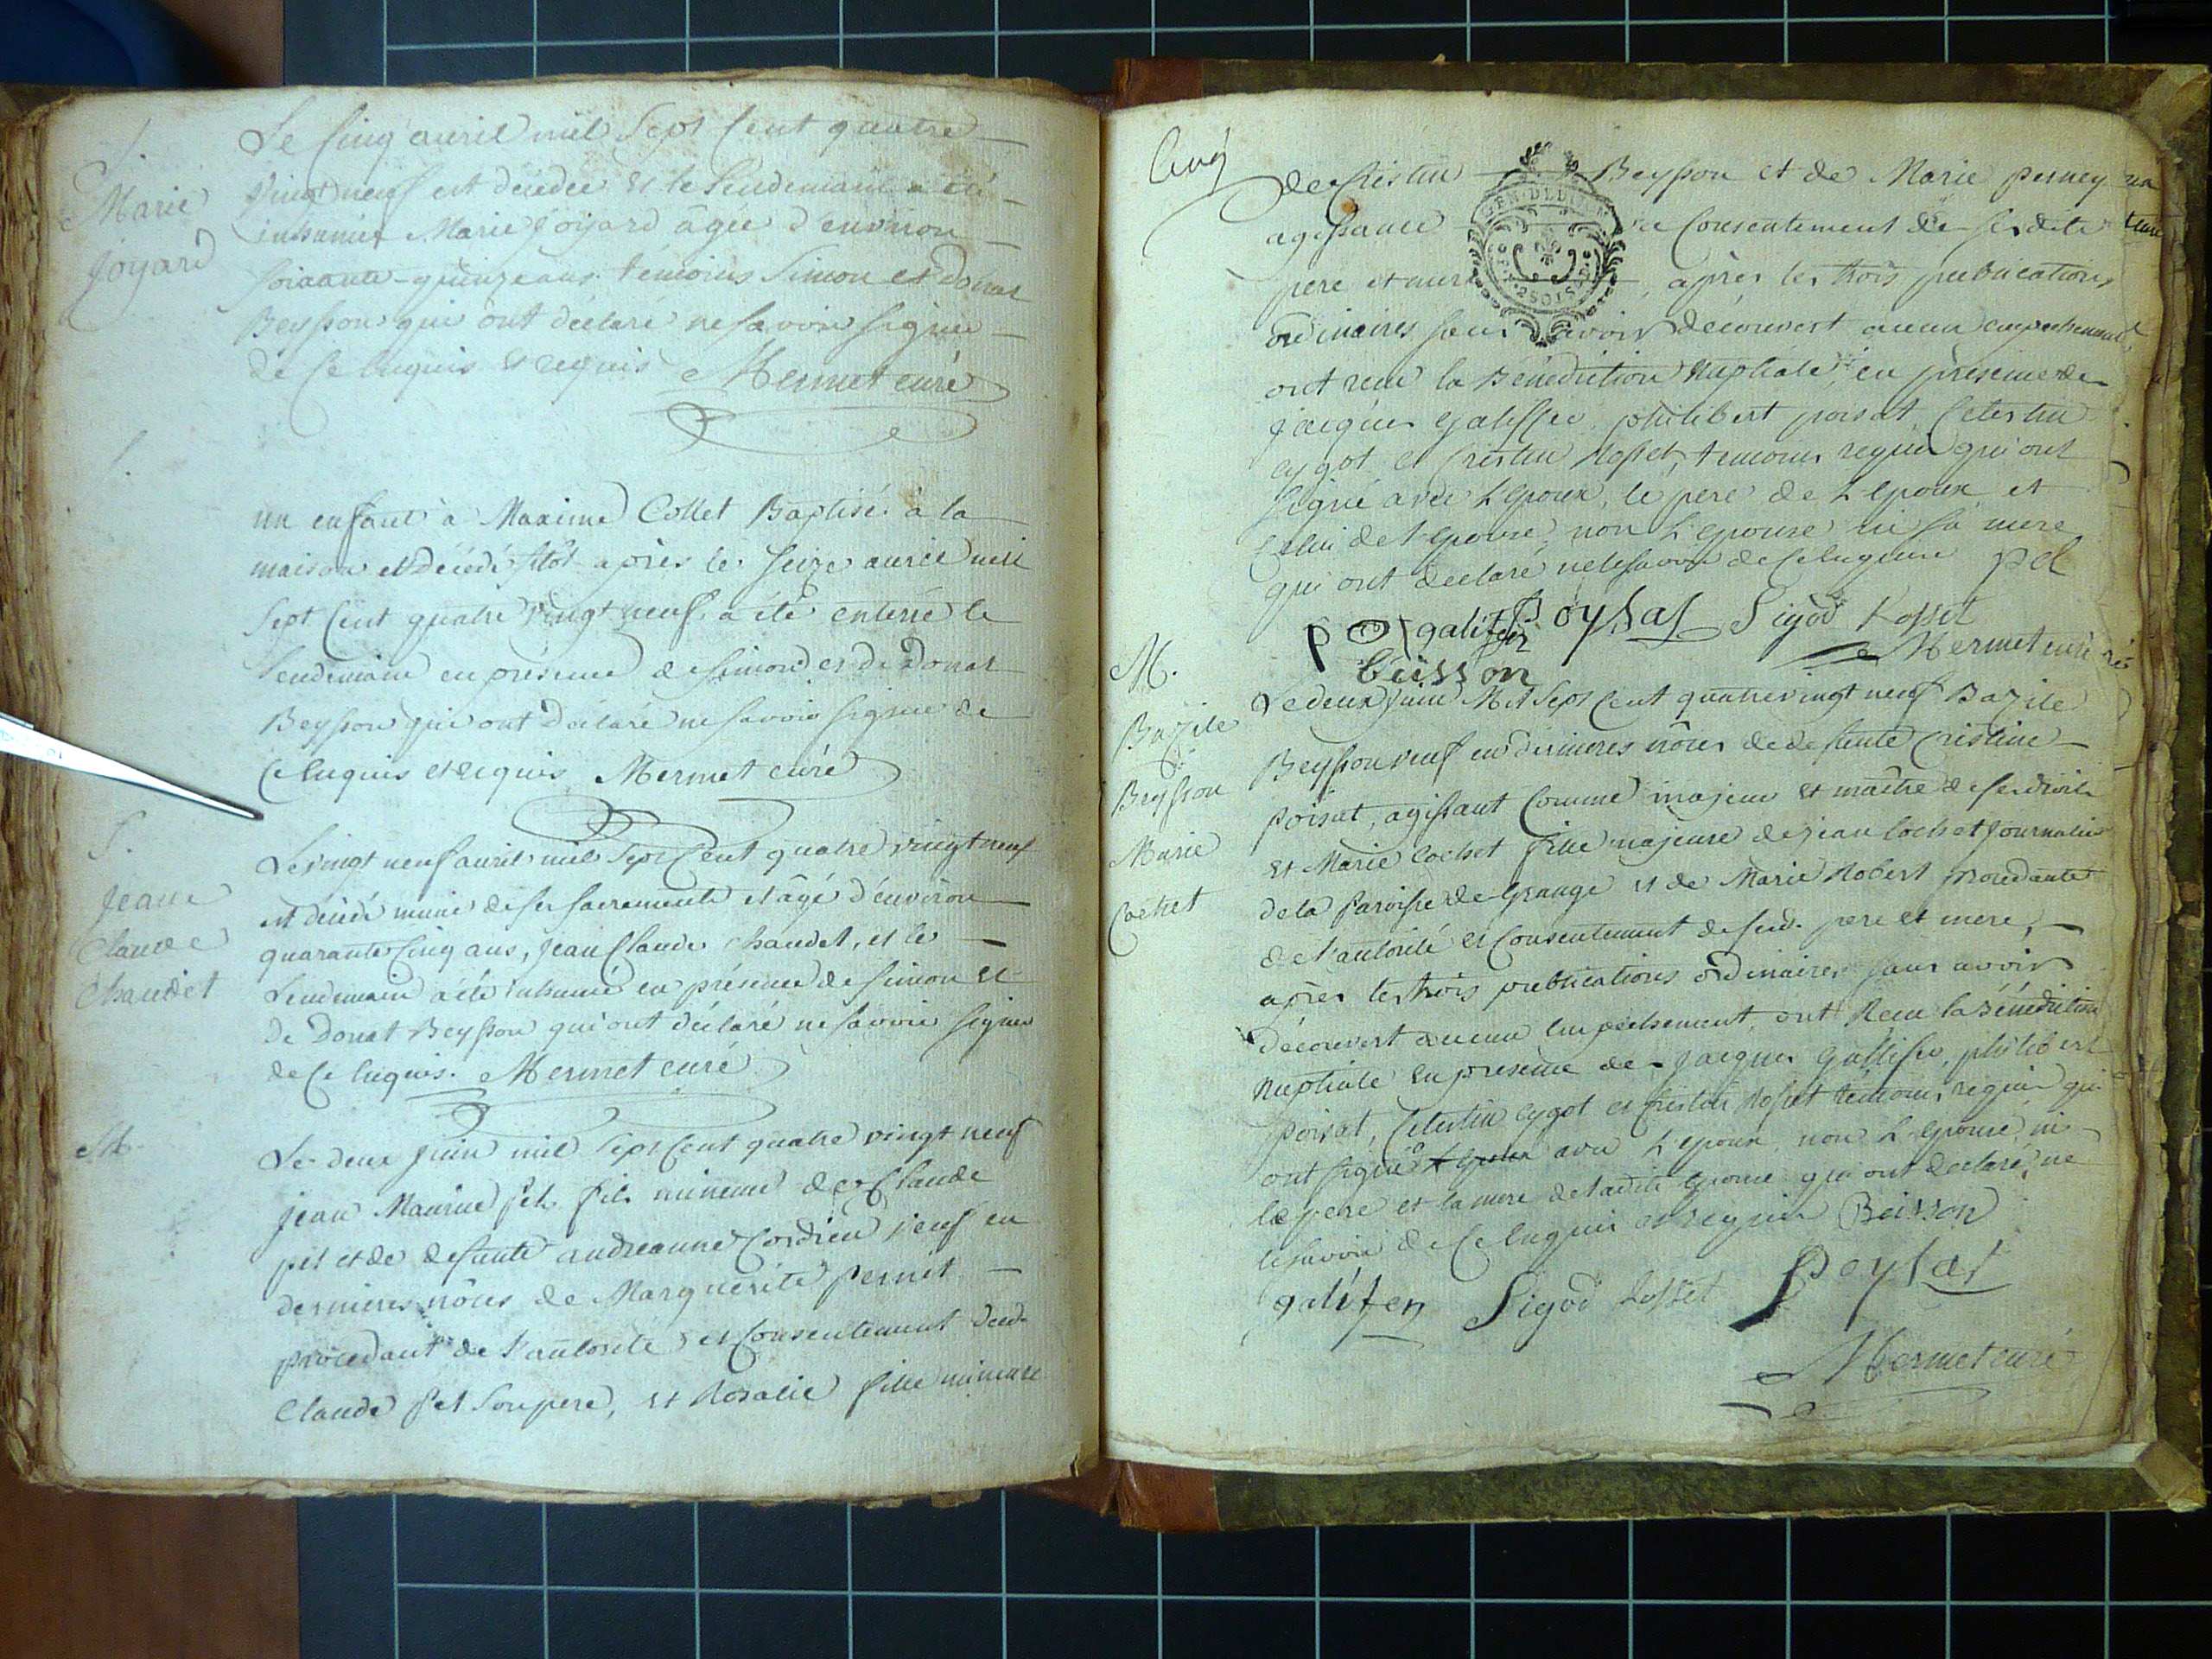 S.
Marie
Joyard
Le Cinq avril mil Sept Cent quatre
vingt neuf est décédée et le Lendemain a été
inhumée Marie Joyard âgée d'environ
soixante-quinze ans. témoins Simon et Donat
Beysson qui ont déclaré ne savoir signer
de ce enquis et requis Mermet curé
S.
un enfant à Maxime Collet Baptisé à la
maison et décédé sitôt après le seize avril mil
Sept Cent quatre vingt neuf a été enterré le
Lendemain en présence de simon et de Donat
Beysson qui ont déclaré ne savoir signer de
ce enquis et requis Mermet curé
S.
Jean
Claude
Chaudet
Le vingt neuf avril mil Sept Cent quatre vingt neuf
est décédé muni de ses sacrements et âgé d'environ
quarante Cinq ans, Jean Claude Chaudet, et le
Lendemain a été inhumé en présence de simon et
de Donat Beysson qui ont déclaré ne savoir signer
de ce enquis. Mermet curé
M.
Le deux Juin mil Sept Cent quatre vingt neuf
Jean Maurice pel fils mineur de Claude
pel et de defunte andreanne Cordieu veuf en
dernieres nôces de Marguerite pernet
procedant de l'autorité et Consentement dud.
Claude pel son pere, et Rosalie fille mineure
Cinq
de Cristin Beysson et de Marie perney
agissante Consentement de sesdits
pere et mere, après les trois publications
ordinaires sans avoir découvert aucun empechement,
ont reçu la Bénédiction Nuptiale en présence de
Jacques galisse philibert poisat Celestin
cygot et Cristin Rosset, temoins requis qui ont
signé avec L'epoux, le pere de L'epoux et
Celui de l'epouse, non L'epouse ni sa mere
qui ont declaré ne le savoir de ce enquise pel
pel galifer poysat Sigod Rosset
beisson Mermet curé
M.
Bazile
Beysson
Marie
Cochet
Le deux Juin Mil Sept Cent quatre vingt neuf Bazile
Beysson veuf en dernieres nôces de defunte Cristine
poisat, agissant Comme majeur et maître de ses droits
et Marie Cochet fille majeure de jean Cochet Journalier
de la paroisse de Grange et de Marie Robert procedante
de l'autorité et Consentement de sesd. pere et mere,
après les trois publications ordinaires sans avoir
découvert aucun empêchement, ont Recu la Bénédiction
Nuptiale en présence de Jacques Galisse, philibert
poisat, Celestin cygot et Cristin Rosset temoins requis qui
ont signé avec L'epoux, non L'epouse, ni
le pere et la mere de ladite epouse qui ont declaré ne
le savoir de ce enquis et requis Beisson
galifer Sigod Rosset poysat
Mermet curé